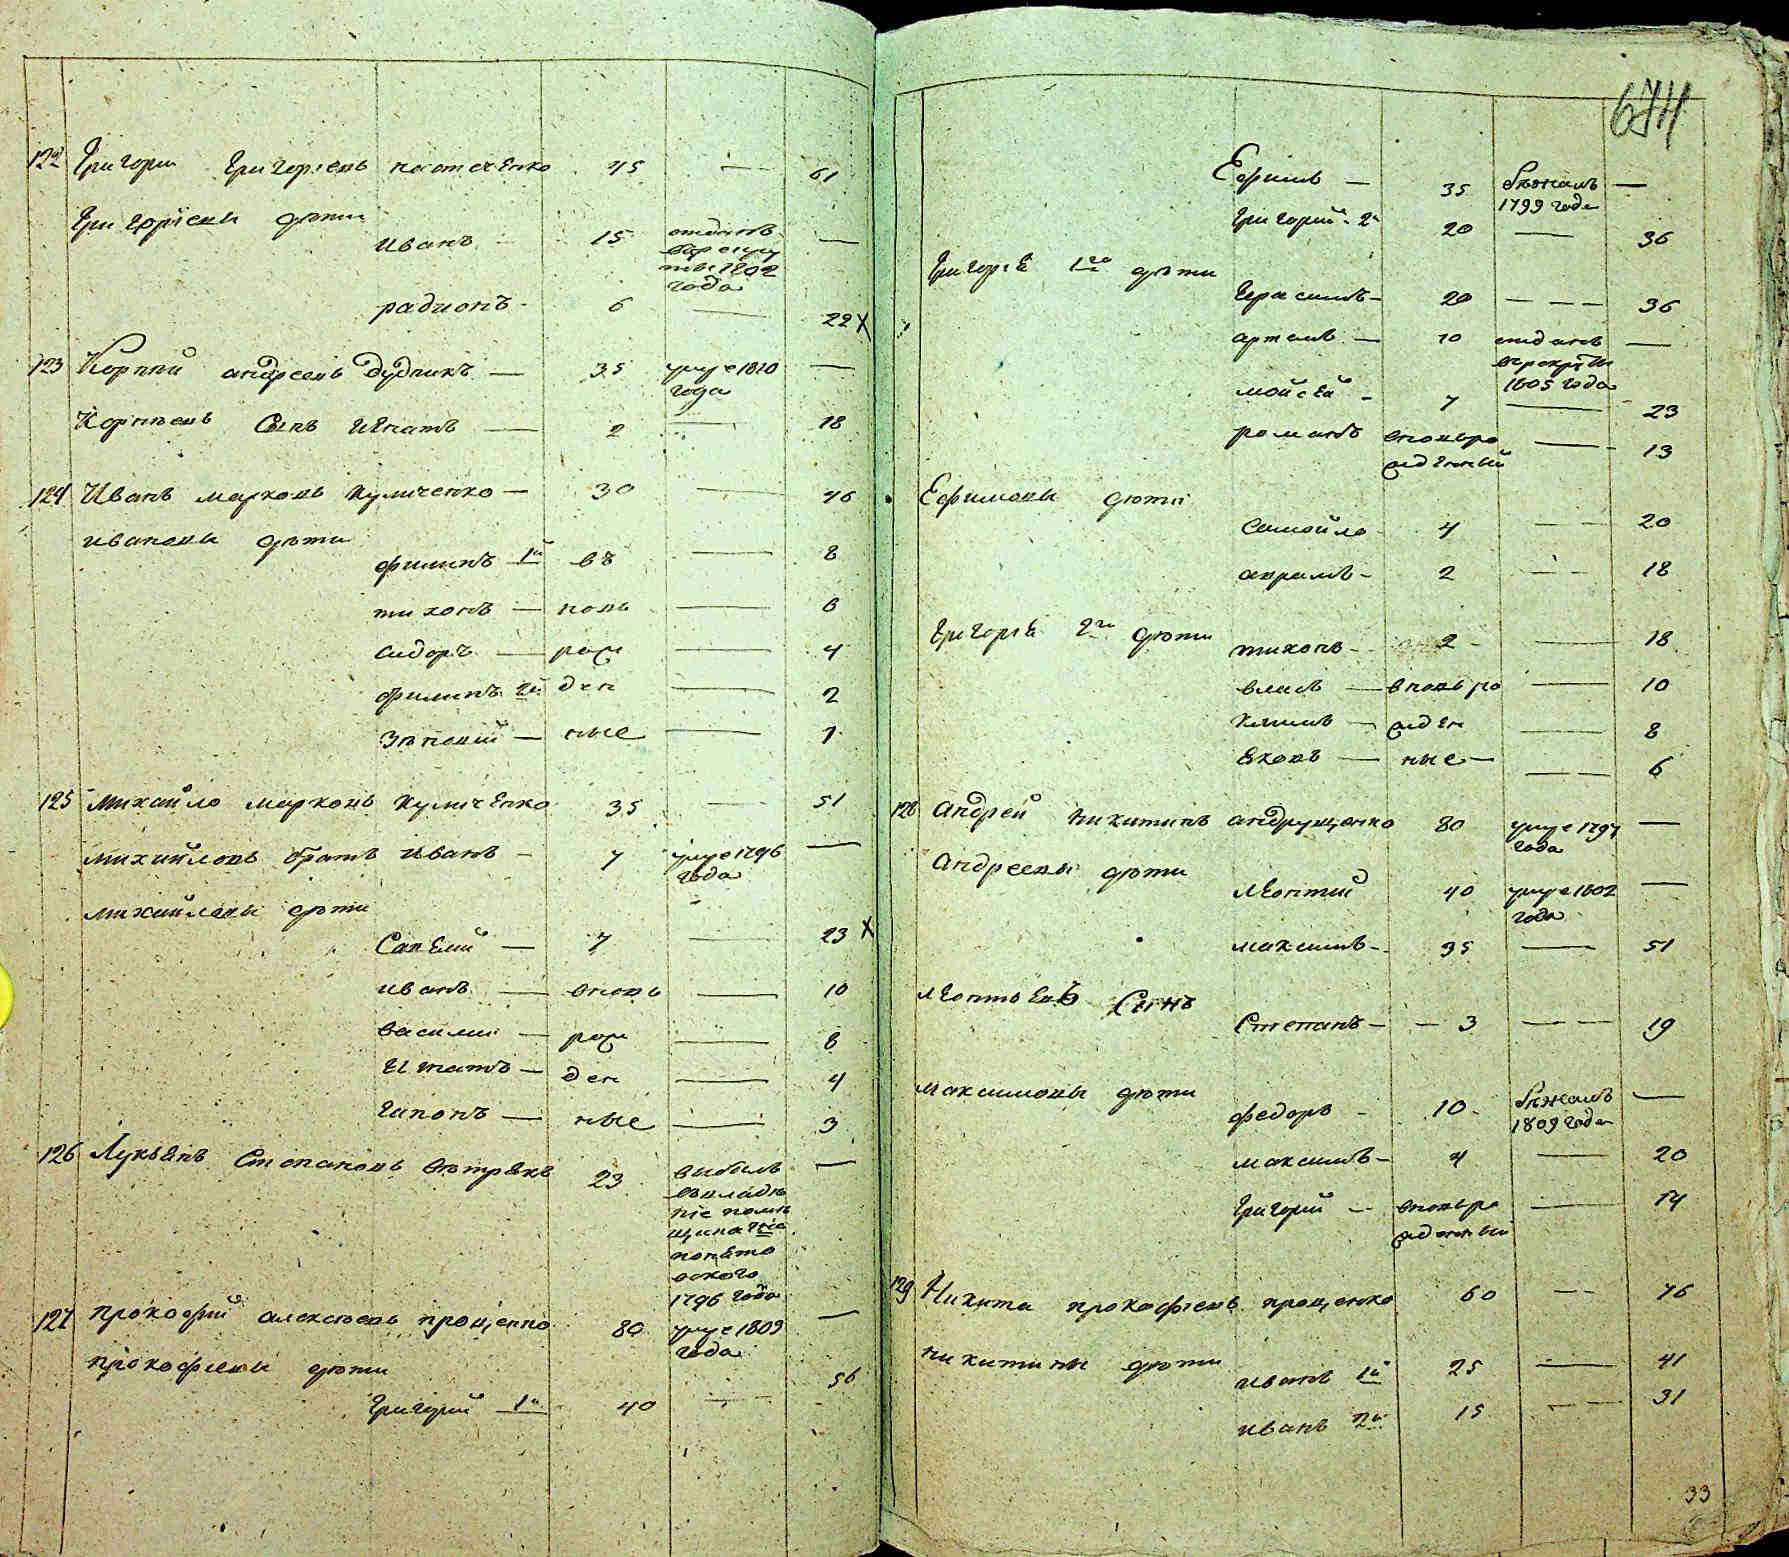 122 Григории Григориевъ костеченко 45 — 61
Григориевы дѣти
Иванъ — 15 отданъ —
в рекру
ты 1802
года
радионъ - 6 — 22 X
123 Корнѣй андреевъ Дудникъ — 35 умре 1810 —
года
Корнѣевъ Сынъ Игнатъ — 2 — 18
124 Иванъ марковъ куличенко — 30 — 46
ивановы дѣти
филипъ 1й въ — 8
тихонъ — новь — 6
сидоръ — рож — 4
филипъ 2й ден — 2
Зѣновий — ные — 1
125 михайло марковъ куличенко 35 — 51
михайловъ братъ Иванъ - 7 умре 1796 —
года
михайловы дѣти
Савелий — 7 — 23 X
иванъ — вновь — 10
василий — рож — 8
Игнатъ — ден — 4
гапонъ — ные — 3
126 Лукьянъ Степановъ вѣтрякъ 23 выбылъ —
въ владѣ
ние помѣ
щика
1796 года
127 прокофий алексѣевъ проценко 80 умре 1809 —
года
прокофиевы дѣти 56
Григорий 1й 40 —
674
Ефимъ — 35 бѣжалъ —
1799 года
Григорий 2й 20 — 36
Григорья 1го дѣти
Герасимъ — 20 — 36
артемъ — 10 отданъ —
в рекруты
1805 года
мойсей - 7 — 23
романъ вновьро — 13
жденный
Ефимовы дѣти
Самойло 4 — 20
аврамъ - 2 — 18
Григорья 2го дѣти тихонъ - 2 — 18
власъ — вновь ро — 10
климъ — жден — 8
яковъ — ные — 6
128 андрей никитинъ андрущенко 80 умре 1797 —
года
андреевы дѣти
Леонтий 40 умре 1802 —
года
максимъ - 35 — 51
Леонтьевъ Сынъ
Степанъ — 3 — 19
максимовы дѣти
федоръ - 10 бѣжалъ —
1809 года
максимъ - 4 — 20
Григорий — вновьро — 14
жденный
129 Никита прокофиевъ проценко 60 — 76
никитины дѣти иванъ 1й 25 — 41
иванъ 2й 15 — 31
33